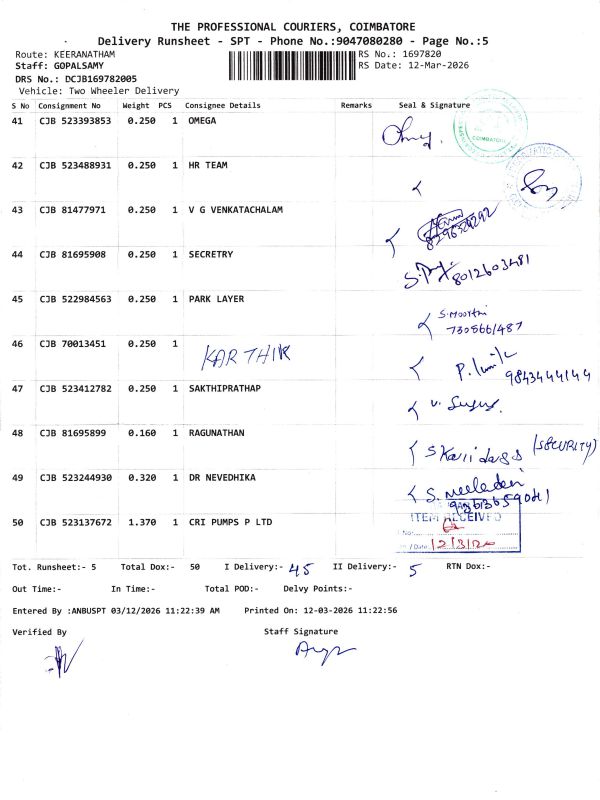 THE PROFESSIONAL COURIERS, COIMBATORE
Delivery Runsheet - SPT - Phone No.:9047080280 - Page No.:5
Route: KEERANATHAM RS No.: 1697820
Staff: GOPALSAMY RS Date: 12-Mar-2026
DRS No.: DCJB169782005
Vehicle: Two Wheeler Delivery
S No Consignment No Weight PCS Consignee Details Remarks Seal & Signature
41 CJB 523393853 0.250 1 OMEGA
COIMBATORE
42 CJB 523488931 0.250 1 HR TEAM
43 CJB 81477971 0.250 1 V G VENKATACHALAM
44 CJB 81695908 0.250 1 SECRETRY
8012603481
45 CJB 522984563 0.250 1 PARK LAYER
S. Moorthi
7305661487
46 CJB 70013451 0.250 1
KARTHIK
9843444144
47 CJB 523412782 0.250 1 SAKTHIPRATHAP
48 CJB 81695899 0.160 1 RAGUNATHAN
(SECURITY)
49 CJB 523244930 0.320 1 DR NEVEDHIKA
50 CJB 523137672 1.370 1 CRI PUMPS P LTD
ITEM RECEIVED
No:
/ Date:
Tot. Runsheet:- 5 Total Dox:- 50 I Delivery:- 45 II Delivery:- 5 RTN Dox:-
Out Time:- In Time:- Total POD:- Delvy Points:-
Entered By :ANBUSPT 03/12/2026 11:22:39 AM Printed On: 12-03-2026 11:22:56
Verified By Staff Signature